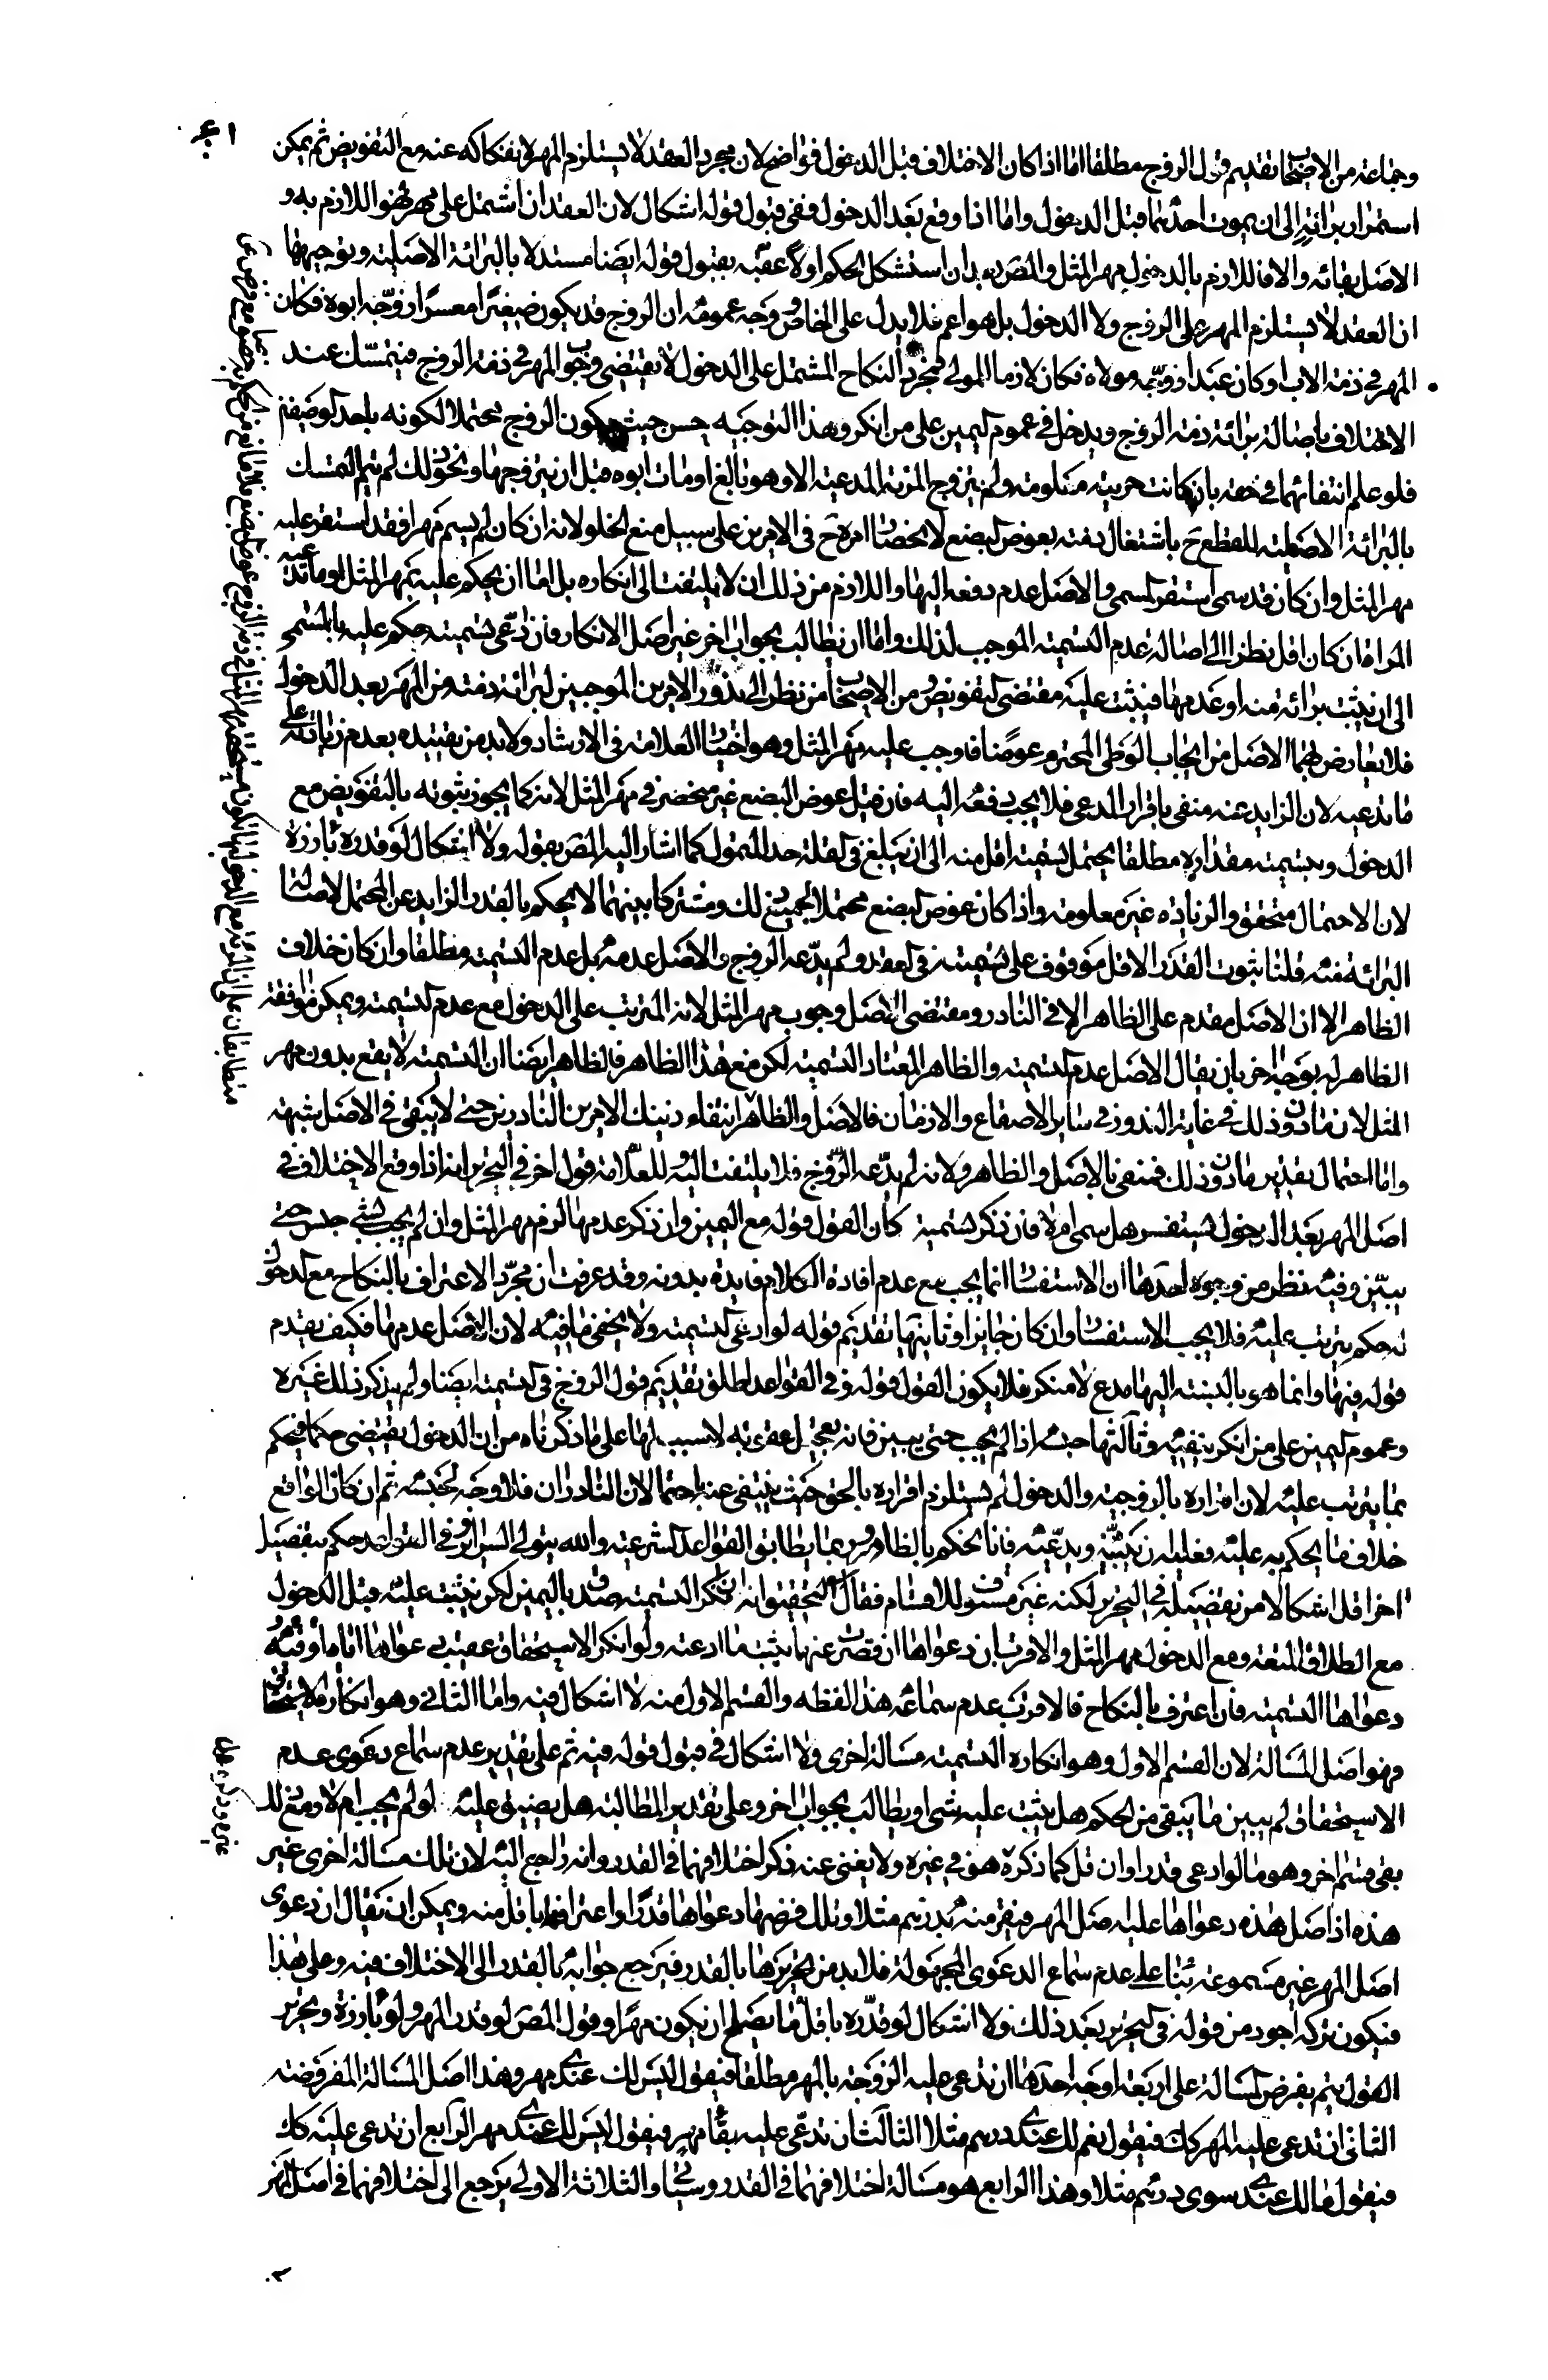 وجماعة من الاصحاب تقديم قول الزوج مطلقا اما اذا كان الاختلاف قبل الدخول فواضح لان مجرد العقد لا يستلزم المهر لانفكاكه عنه مع التفويض ثم يمكن
استمرار برائته الى ان يموت احدهما قبل الدخول واما اذا وقع بعد الدخول ففى قبول قوله اشكال لان العقد ان اشتمل على مهر فهو اللازم به و
الاصل بقائه والا فاللازم بالدخول مهر المثل والمص ره بدان استشكل الحكم اولا عقبه بقبول قوله ايضا مستدلا بالبرائة الاصلية وتوجيهها
ان العقد لا يستلزم المهر على الزوج ولا الدخول بل هو اعم فلا يدل على الخاص ووجه عمومه ان الزوج قد يكون صغيرا معسرا زوجه ابوه فكان
المهر فى ذمة الاب او كان عبدا زوجه مولاه فكان لازما للمولى فمجرد النكاح المشتمل على الدخول لا يقتضى وجوب المهر فى ذمة الزوج فيتمسك عند
الاختلاف باصالة برائة ذمة الزوج ويدخل فى عموم اليمين على من انكر وهذا التوجيه حسن حيث يكون الزوج محتملا لكونه باحد الوصفين
فلو علم انتفائهما فى حقه بان كانت حريته معلومة ولم يتزوج المرئة المدعية الا وهو بالغ او مات ابوه قبل ان يتزوجها ونحو ذلك لم يتم التمسك
بالبرائة الاصلية للقطع ح باشتغال ذمته بعوض البضع لانحصار امره ح فى الامرين على سبيل منع الخلو لانه ان كان لم يسم مهرا فقد استقر عليه
مهر المثل وان كان قد سمى استقر المسمى والاصل عدم دفعه اليها واللازم من ذلك ان لا يلتفت الى انكاره بل اما ان يحكم عليه بمهر المثل او ما تدعيه
المراة ان كان اقل نظرا الى اصالة عدم التسمية الموجب لذلك واما ان يطالب بجواب اخر غير اصل الانكار فان ادعى تسمية حكم عليه بالمسمى
الى ان يثبت برائته منه او عدمها فيثبت عليه مقتضى التفويض ومن الاصحاب من نظر الى ندور الامرين الموجبين لبرائة ذمته من المهر بعد الدخول
فلا يعارض بهما الاصل من ايجاب الوطى المحترم عوضا فاوجب عليه مهر المثل وهو اختيار العلامة فى الارشاد ولا بد من تقييده بعدم زيادته على
ما تدعيه لان الزايد عنه منفى باقرار المدعى فلا يجب دفعه اليه فان قيل عوض البضع غير منحصر فى مهر المثل لانه كما يجوز ثبوته بالتفويض مع
الدخول وبتسمية مقداره مطلقا يحتمل تسمية اقل منه الى ان يبلغ فى القلة حد المتمول كما اشار اليه المص بقوله ولا اشكال لو قدره بارزة
لان الاحتمال متحقق والزيادة غير معلومة واذا كان عوض البضع محتملا لجميع ذلك ومشتركا بينهما لا يحكم بالقدر الزايد عن المحتمل لاصالة
البرائة منه قلنا ثبوت القدر الاقل موقوف على تسميته فى العقد ولم يدعه الزوج والاصل عدمه بل عدم التسمية مطلقا وان كان خلاف
الظاهر الا ان الاصل مقدم على الظاهر الا فى النادر ومقتضى الاصل وجوب مهر المثل لانه المترتب على الدخول مع عدم التسمية ويمكن موافقة
الظاهر له بوجه اخر بان يقال الاصل عدم التسمية والظاهر المعتاد التسمية لكن مع هذا الظاهر فالظاهر ايضا ان التسمية لا يقع بدون مهر
المثل لان ما دون ذلك فى غاية الندور فى ساير الاصقاع والازمان فالاصل والظاهر انتفاء ذينك الامرين النادرين حتى لا يبقى فى الاصل شبهة
واما احتمال تقدير ما دون ذلك فمنفى بالاصل والظاهر ولانه لم يدعه الزوج فلا يلتفت اليه وللعلامة قول اخر فى التحرير انه اذا وقع الاختلاف فى
اصل المهر بعد الدخول يستفسر هل سمى ام لا فان ذكر تسمية كان القول قوله مع اليمين وان ذكر عدمها لزم مهر المثل وان لم يجب بشئ حبس حتى
يبين وفيه نظر من وجوه احدها ان الاستفسار انما يجب مع عدم افادة الكلام فايدة بدونه وقد عرفت ان مجرد الاعتراف بالنكاح مع الدخول
له حكم يترتب عليه فلا يجب الاستفسار وان كان جايزا وثانيها تقديم قوله لو ادعى التسمية ولا يخفى ما فيه لان الاصل عدمها فكيف يقدم
قوله فيها وانما هو بالنسبة اليها مدع لا منكر فلا يكون القول قوله وفى القواعد اطلق تقديم قول الزوج فى التسمية ايضا ولم يذكر ذلك غيره
وعموم اليمين على من انكر ينفيه وثالثها حبسه اذا لم يجب حتى يبين فانه تعجيل لعقوبة لا سبب لها على ما ذكرناه من ان الدخول يقتضى حكما فيحكم
بما يترتب عليه لان اقراره بالزوجية والدخول لم يستلزم اقراره بالحق حيث ينتفى عنه احتمالان النادران فلا وجه لحبسه ثم ان كان الواقع
خلاف ما يحكم به عليه فعليه ان يبينه ويدعيه فانا نحكم بالظاهر وبما يطابق القواعد الشرعية والله يتولى السراير وفى القواعد حكم بتفصيل
اخر اقل اشكالا من تفصيله فى التحرير لكنه غير مستوف للاقسام فقال التحقيق انه ان انكر التسمية صدق باليمين لكن يثبت عليه قبل الدخول
مع الطلاق المتعة ومع الدخول مهر المثل والاقرب ان دعواها ان قصرت عنهما يثبت ما ادعته ولو انكر الاستحقاق عقيب دعواها اياه او فيه
دعواها التسمية فان اعترف بالنكاح فالاقرب عدم سماعه هذا لفظه والقسم الاول منه لا اشكال فيه واما الثانى وهو انكاره الاستحقاق
فهو اصل المسالة لان القسم الاول وهو انكاره التسمية مسالة اخرى ولا اشكال فى قبول قوله فيه ثم على تقدير عدم سماع دعوى عدم
الاستحقاق لم يبين ما يبقى من الحكم هل يثبت عليه شئ او يطالب بجواب اخر وعلى تقدير المطالبة هل يضيق عليه لو لم يجب ام لا ومع ذلك
بقى قسم اخر وهو ما لو ادعى قدرا وان قل كما ذكره هو فى غيره ولا يغنى عنه ذكر اختلافهما فى القدر وانه راجع اليه لان تلك مسالة اخرى غير
هذه اذ اصل هذه دعواها عليه اصل المهر فيقر منه بدرهم مثلا وتلك فرضها دعواها قدرا واعترافه باقل منه ويمكن ان يقال ان دعوى
اصل المهر غير مسموعة بناء على عدم سماع الدعوى المجهولة فلا بد من تحريرها بالقدر فيرجع جوابه بالقدر الى الاختلاف فيه وعلى هذا
فيكون تركه اجود من قوله فى التحرير بعد ذلك ولا اشكال لو قدره باقل ما يصلح ان يكون مهرا وقول المص لو قدر المهر ولو بارزة وتحرير
القول يتم بفرض المسالة على اربعة اوجه احدها ان تدعى عليه الزوجة بالمهر مطلقا فيقول ليس لك عندى مهر وهذا اصل المسالة المفروضة
الثانى ان تدعى عليه المهر كذلك فيقول نعم لك عندى درهم مثلا الثالث ان تدعى عليه بقدر مهر فيقول ليس لك عندى مهر الرابع ان تدعى عليه كك
فيقول مالك عندى سوى درهم مثلا وهذا الرابع هو مسالة اختلافهما فى القدر وسياتى والثلاثة الاولى يرجع الى اختلافهما فى اصل المهر